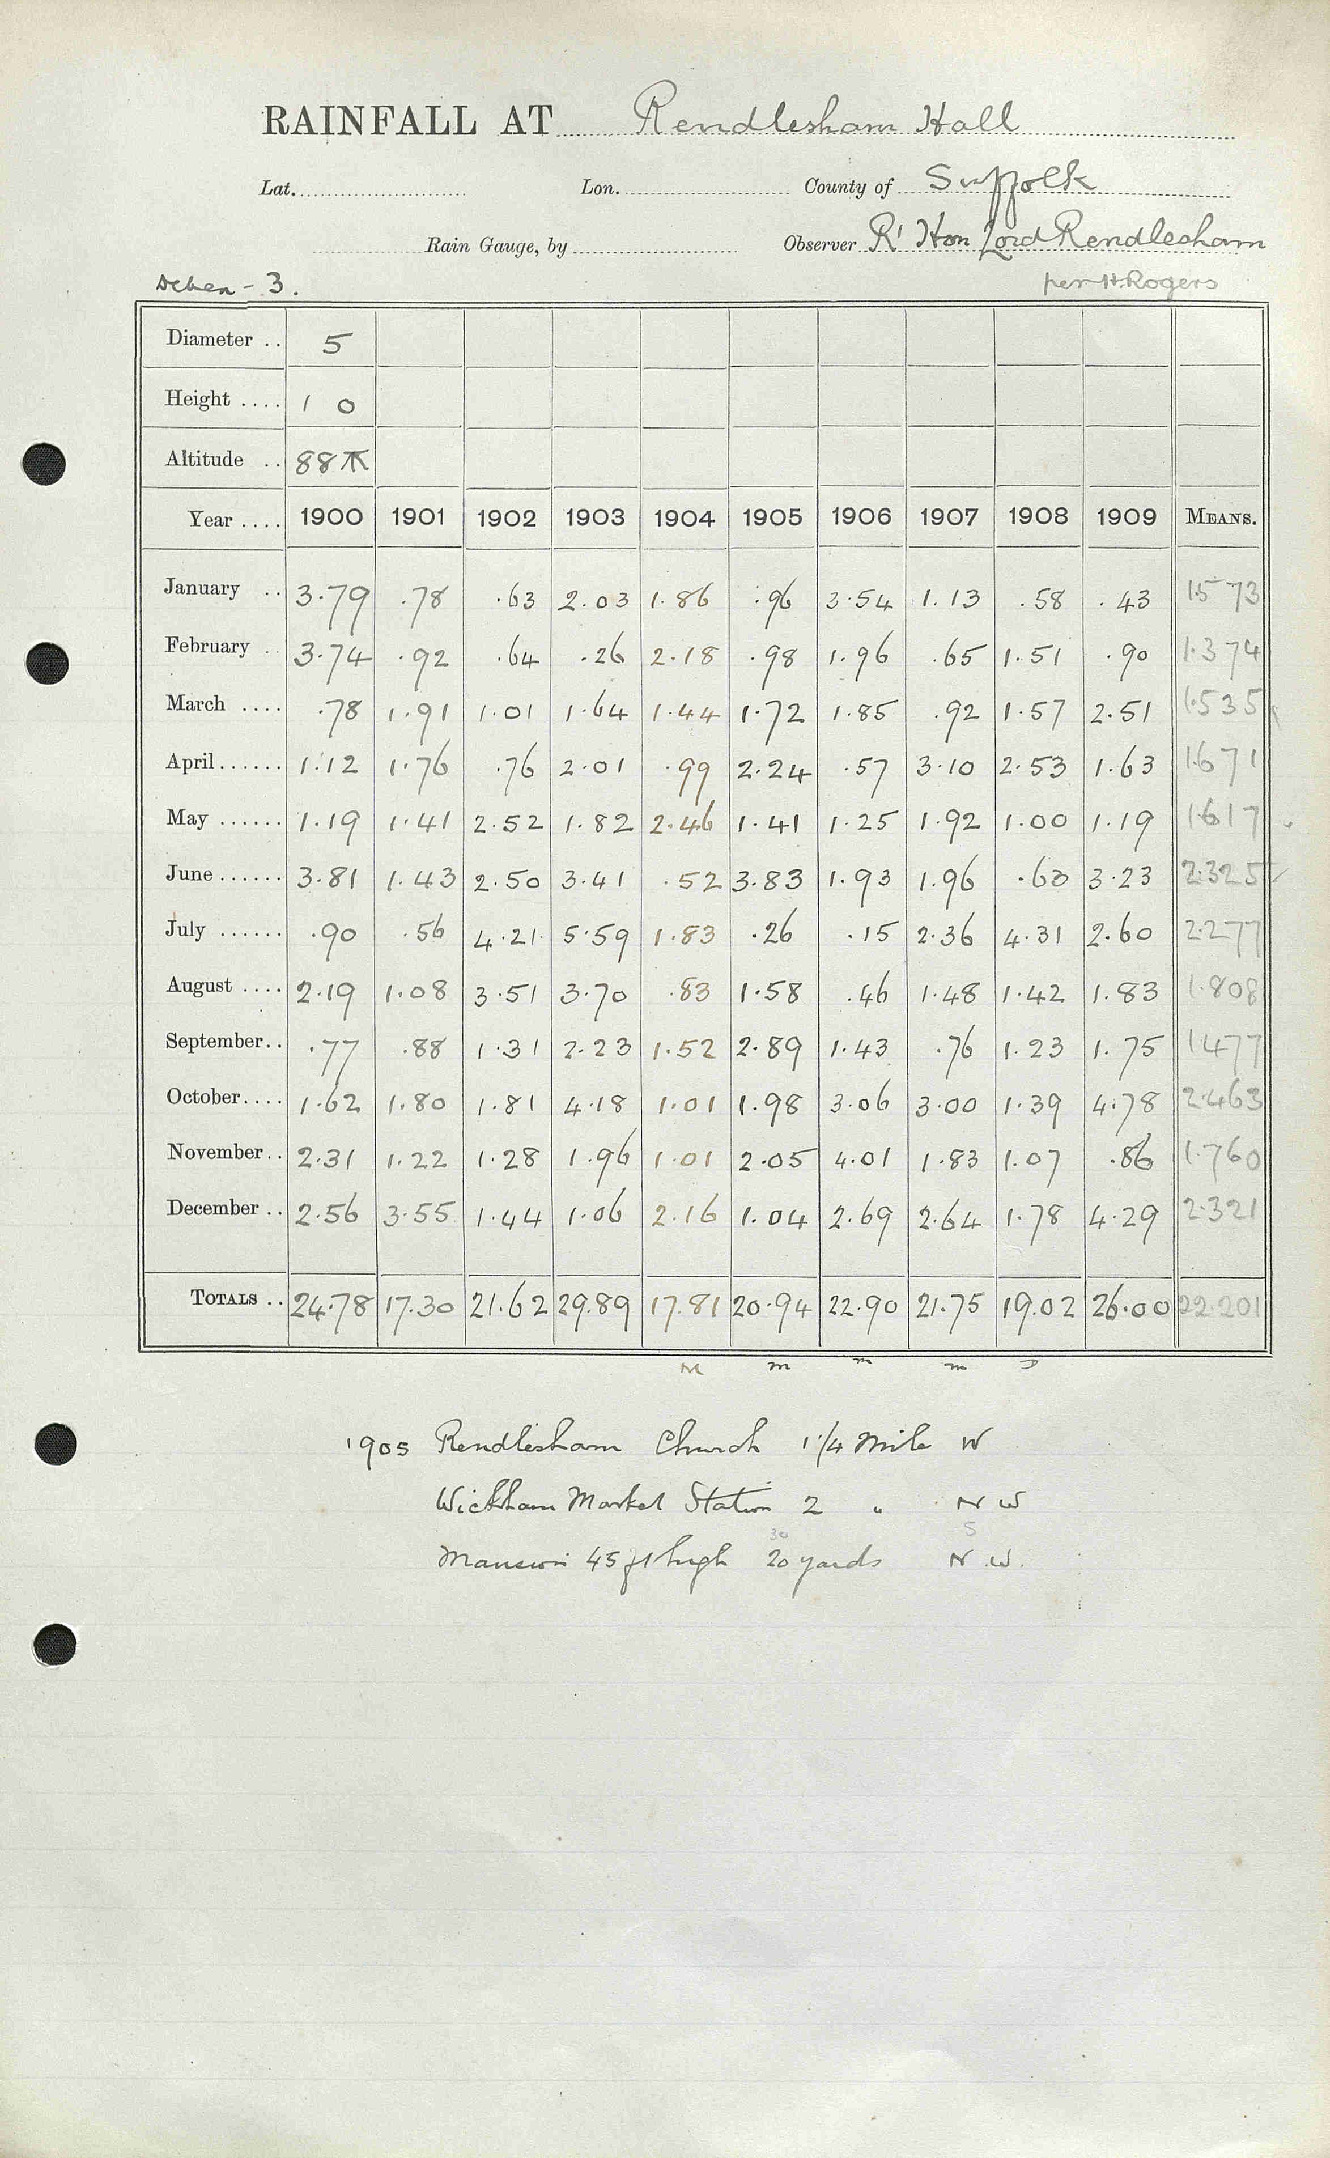 RAINFALL AT Rendlesham Hall
Lat. Lon. County of Suffolk
Rain Gauge, by Observer Rt Hon Lord Rendlesham
Deben - 3. per H. Rogers
Diameter .. 5
Height .... 1 0
Altitude .. 88
Year .... 1900 1901 1902 1903 1904 1905 1906 1907 1908 1909 MEANS.
January .. 3.79 .78 .63 2.03 1.86 .96 3.54 1.13 .58 .43 1.573
February .. 3.74 .92 .64 .26 2.18 .98 1.96 .65 1.51 .90 1.374
March .... .78 1.91 1.01 1.64 1.44 1.72 1.85 .92 1.57 2.51 1.535
April ...... 1.12 1.76 .76 2.01 .99 2.24 .57 3.10 2.53 1.63 1.671
May ...... 1.19 1.41 2.52 1.82 2.46 1.41 1.25 1.92 1.00 1.19 1.617
June ...... 3.81 1.43 2.50 3.41 .52 3.83 1.93 1.96 .63 3.23 2.325
July ...... .90 .56 4.21 5.59 1.83 .26 .15 2.36 4.31 2.60 2.277
August .... 2.19 1.08 3.51 3.70 .83 1.58 .46 1.48 1.42 1.83 1.808
September.. .77 .88 1.31 2.23 1.52 2.89 1.43 .76 1.23 1.75 1.477
October.... 1.62 1.80 1.81 4.18 1.01 1.98 3.06 3.00 1.39 4.78 2.463
November.. 2.31 1.22 1.28 1.96 1.01 2.05 4.01 1.83 1.07 .86 1.760
December .. 2.56 3.55 1.44 1.06 2.16 1.04 2.69 2.64 1.78 4.29 2.321
TOTALS .. 24.78 17.30 21.62 29.89 17.81 20.94 22.90 21.75 19.02 26.00 22.201
M m m m
1905 Rendlesham Church 1 1/4 Mile W
Wickham Market Station 2 " N W
30 S
Mansion 45 ft high 20 yards N.W.